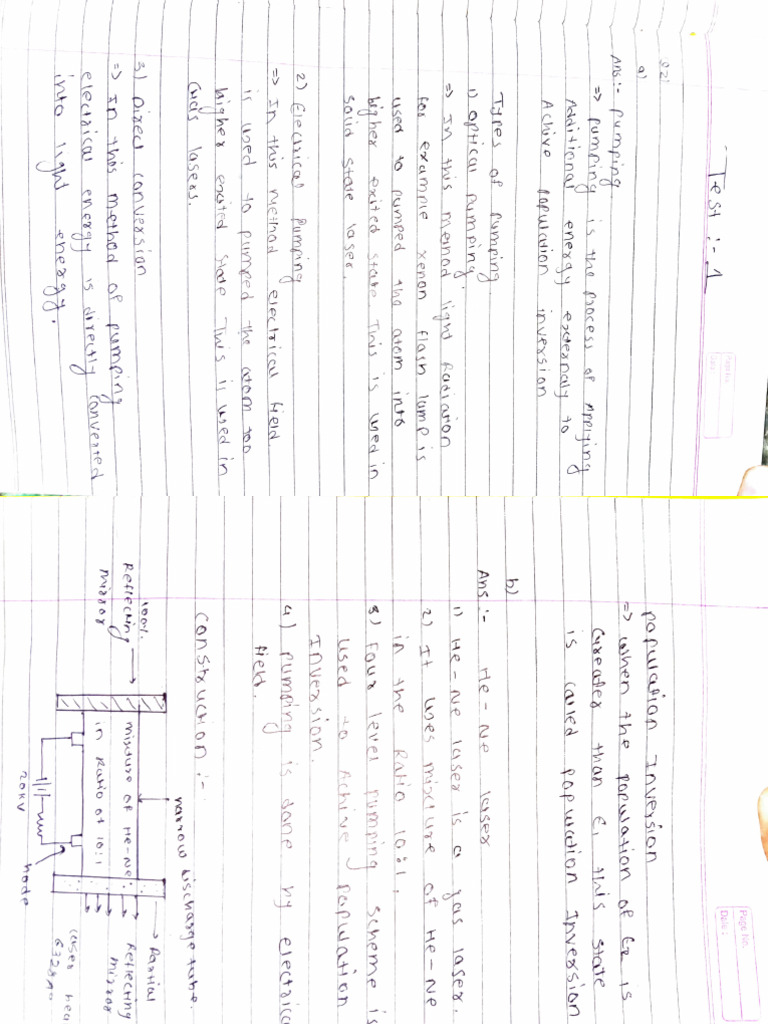 Test :- 1
Page No.
Date :
Q2)
a)
Ans:- pumping
=> pumping is the process of Applying
Additional energy externaly to
Achive population inversion
Types of pumping.
1) optical pumping.
=> In this method light Radiation
for example xenon flash lamp is
used to pumped the atom into
higher exited state This is used in
solid state laser.
2) Electrical pumping
=> In this method electrical field
is used to pumped the atom too
higher exited state This is used in
laser.
3) Direct conversion
=> In this method of pumping
electrical energy is directly converted
into light energy.
Page No.
Date :
population Inversion
=> when the population of E2 is
Greater than E1 this state
is called population Inversion
b)
Ans :- He-Ne laser
1) He-Ne laser is a gas laser.
2) It uses mixture of He-Ne
in the Ratio 10:1,
3) Four level pumping scheme is
used to Achive population
Inversion.
4) pumping is done by electrica
field.
construction :-
narrow discharge tube.
100%
Reflecting
mirror
mixture of He-Ne
in Ratio of 10:1
Partial
Reflecting
mirror
laser
20KV
node